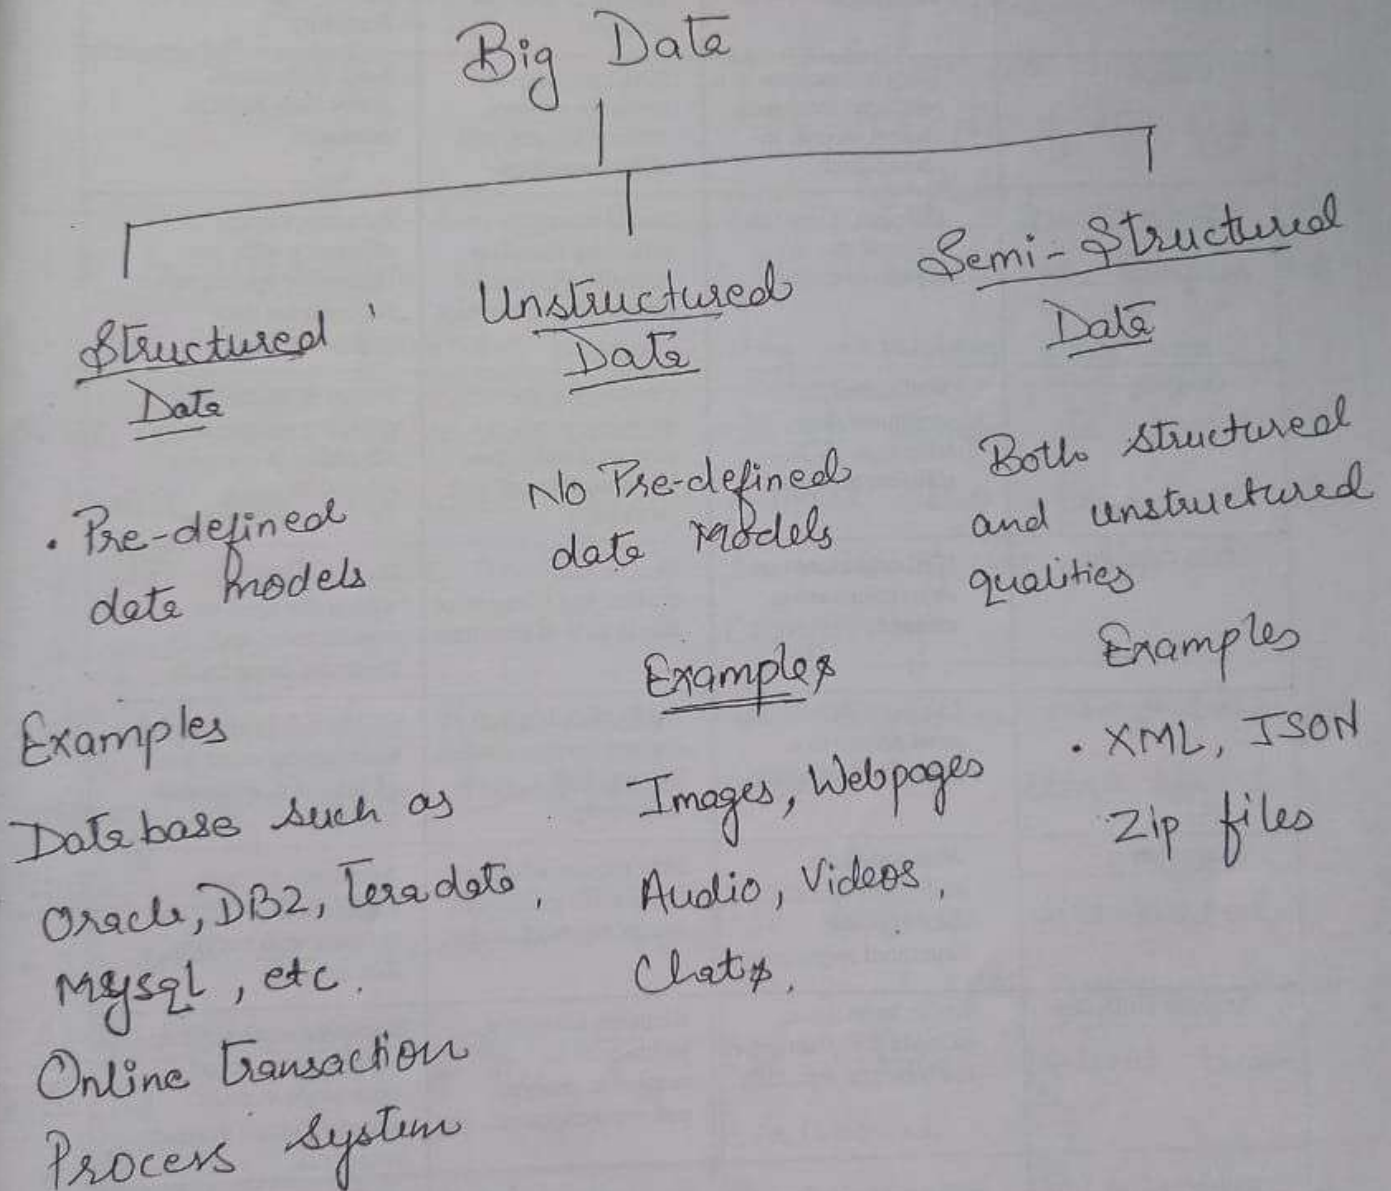 Big Data
Structured
Data
• Pre-defined
data models
Examples
Database such as
Oracle, DB2, Teradata,
Mysql, etc.
Online transaction
Process system
Unstructured
Data
No Pre-defined
data models
Examples
Images, Webpages
Audio, Videos,
Chats,
Semi-Structured
Data
Both structured
and unstructured
qualities
Examples
• XML, JSON
Zip files